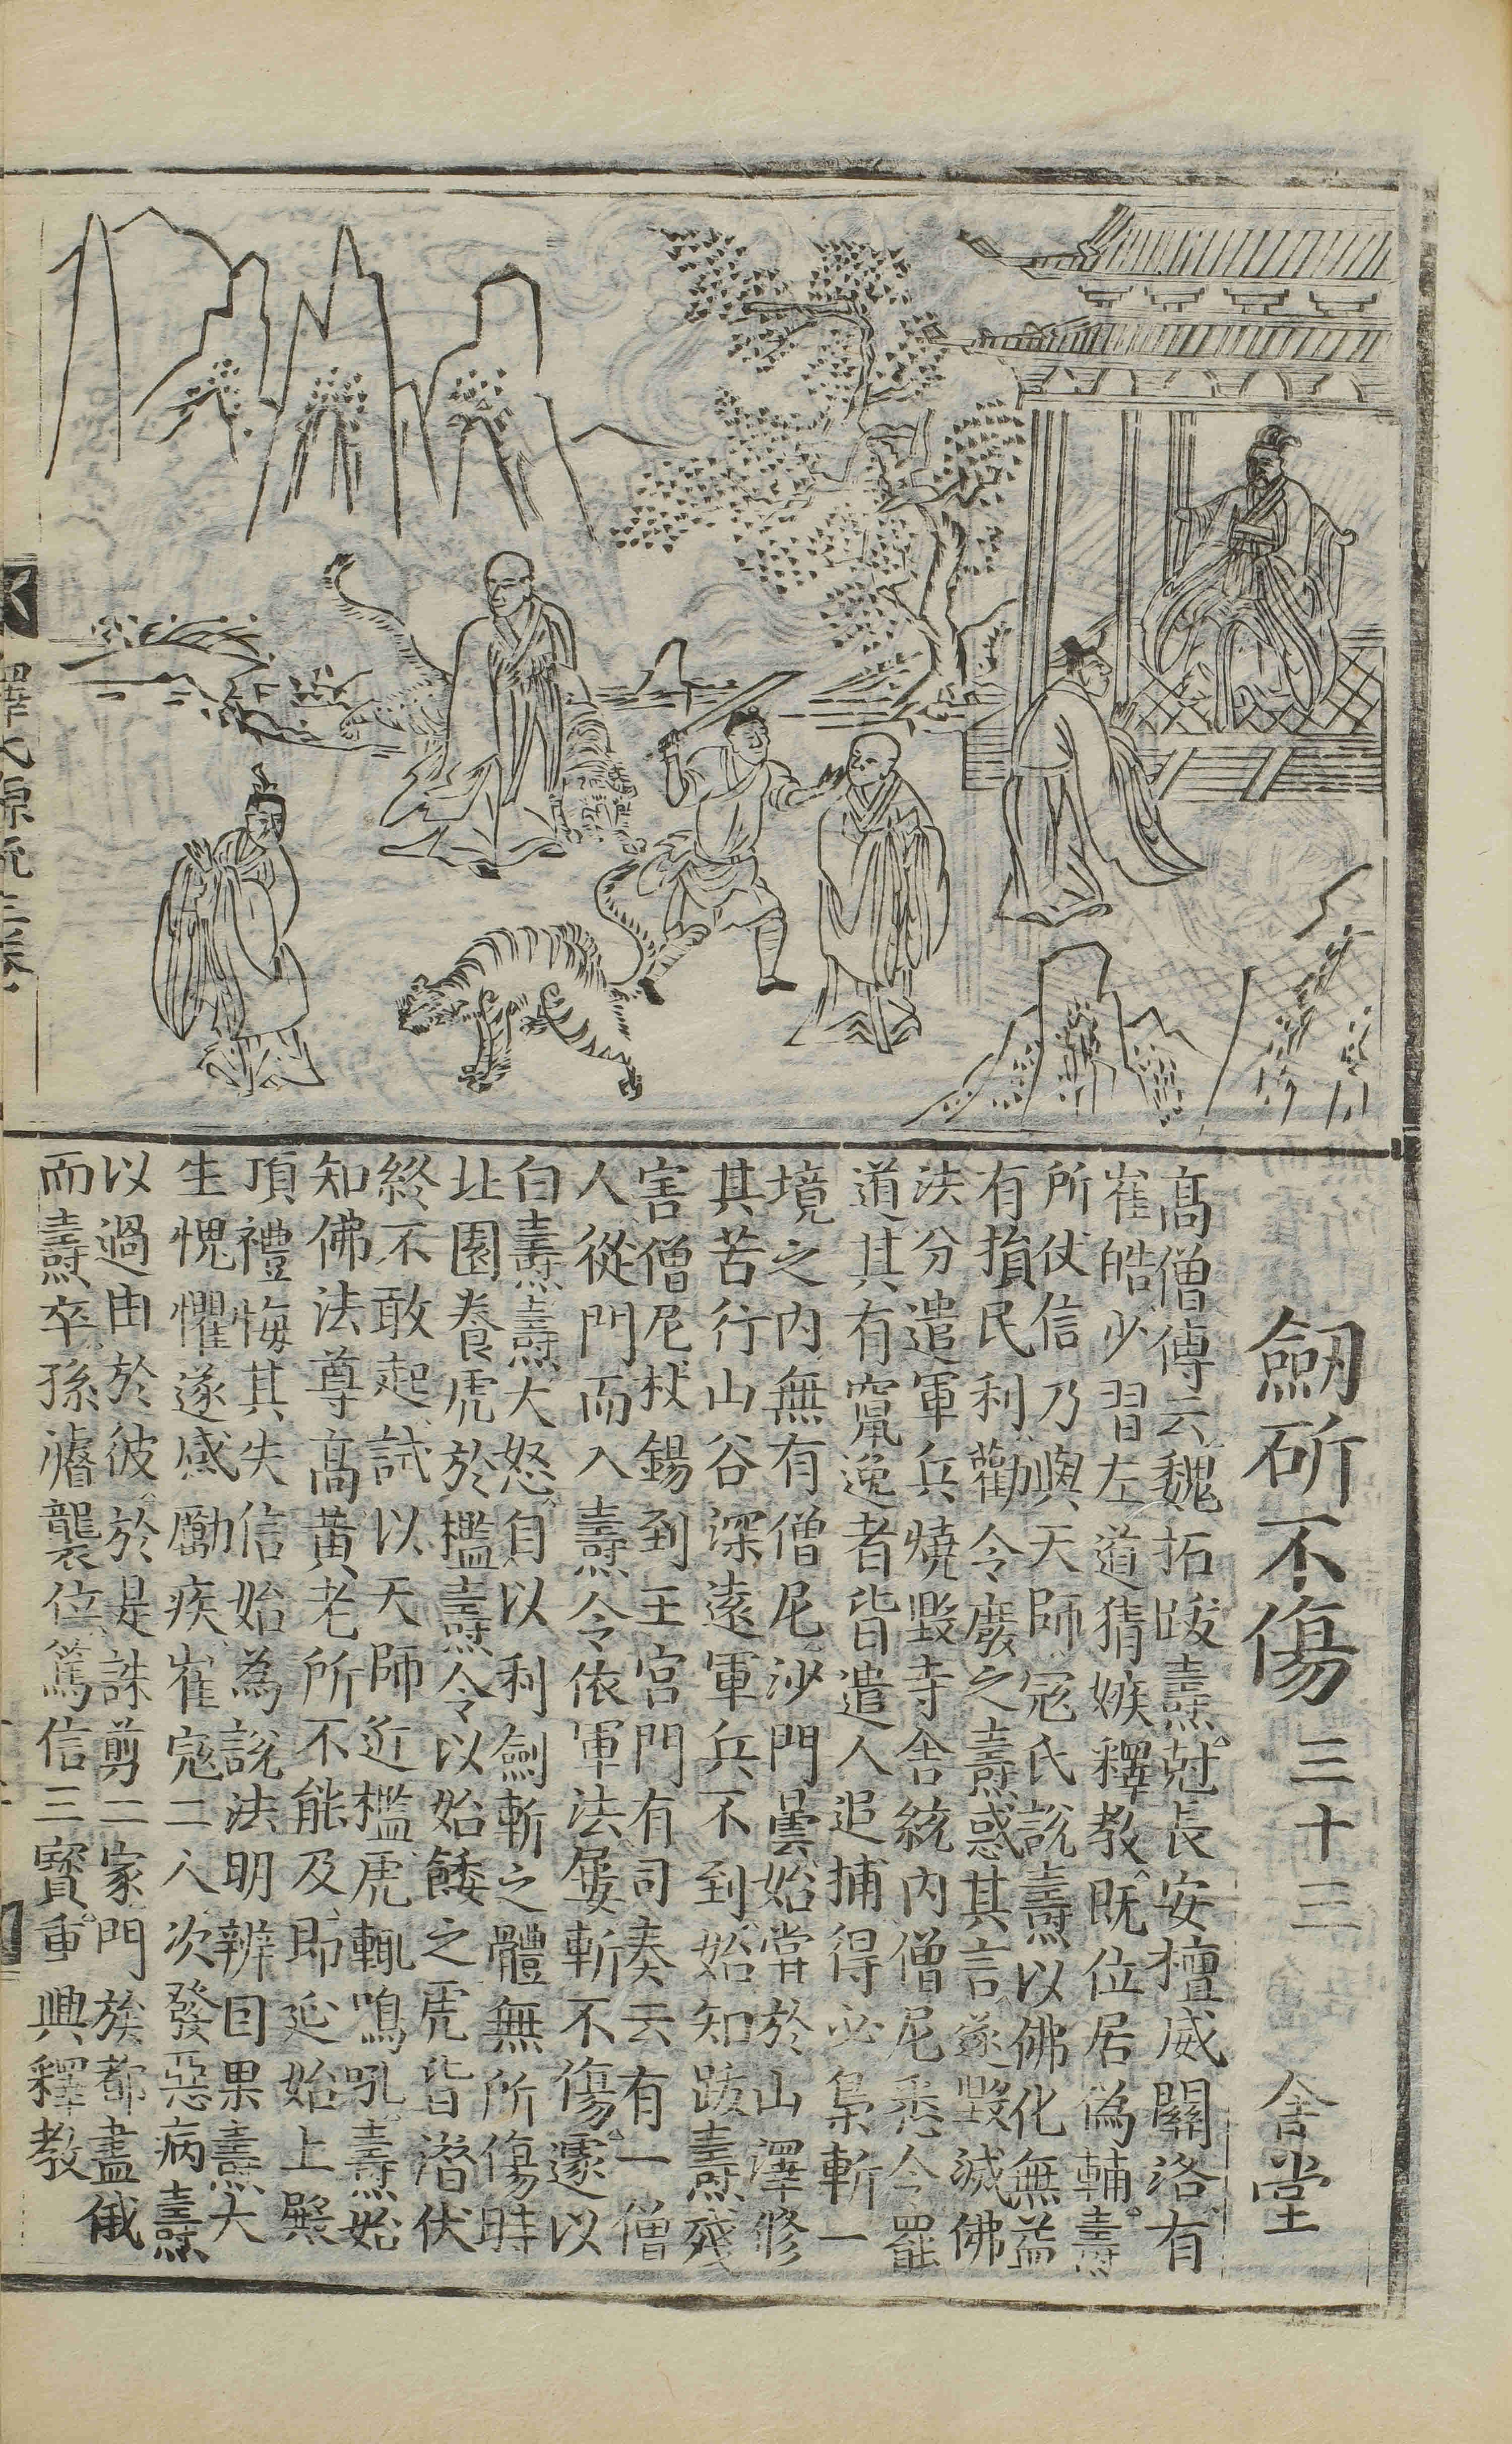 劒斫不傷 三十三 舍堂
高僧傳云魏拓跋燾尅長安擅威關洛有
崔皓少習左道猜嫉釋教既位居偽輔燾
所仗信乃與天師冦氏說燾以佛化無益
有損民利勸令廢之燾惑其言遂毀滅佛
法分遣軍兵燒毀寺舍統內僧尼悉令罷
道其有竄逸者皆遣人追捕得必梟斬一
境之內無有僧尼沙門曇始當於山澤修
其苦行山谷深遠軍兵不到始知跋燾殘
害僧尼杖錫到王宮門有司奏云有一僧
人從門而入燾令依軍法屢斬不傷遽以
白燾燾大怒自以利劍斬之體無所傷時
北園養虎於檻燾令以始餧之虎皆潛伏
終不敢起試以天師近檻虎輒鳴吼燾始
知佛法尊高黃老所不能及即延始上殿
頂禮悔其失信始為說法明辨因果燾大
生愧懼遂感癘疾崔寇二人次發惡病燾
以過由於彼於是誅剪二家門族都盡俄
而燾卒孫濬襲位篤信三寶重興釋教
釋氏源流三卷